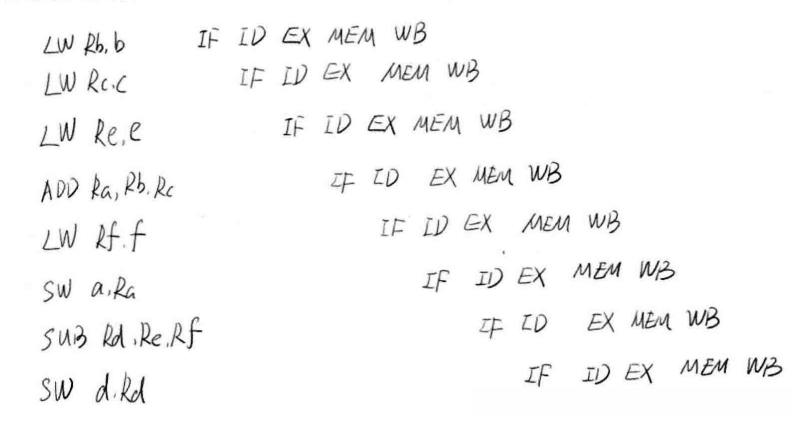 LW Rb,b IF ID EX MEM WB
LW Rc.c IF ID EX MEM WB
LW Re,e IF ID EX MEM WB
ADD Ra,Rb.Rc IF ID EX MEM WB
LW Rf.f IF ID EX MEM WB
SW a.Ra IF ID EX MEM WB
SUB Rd.Re.Rf IF ID EX MEM WB
SW d.Rd IF ID EX MEM WB